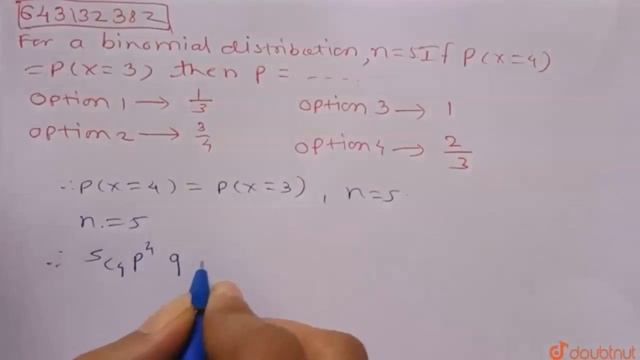 643132382
For a binomial distribution, n=5 If P(x=4)
=P(x=3) then P= ----.
Option 1 → 1/3
Option 3 → 1
Option 2 → 3/4
Option 4 → 2/3
∴ P(x=4) = P(x=3), n=5
n.=5
∴ 5c4 p^4 q
doubtnut